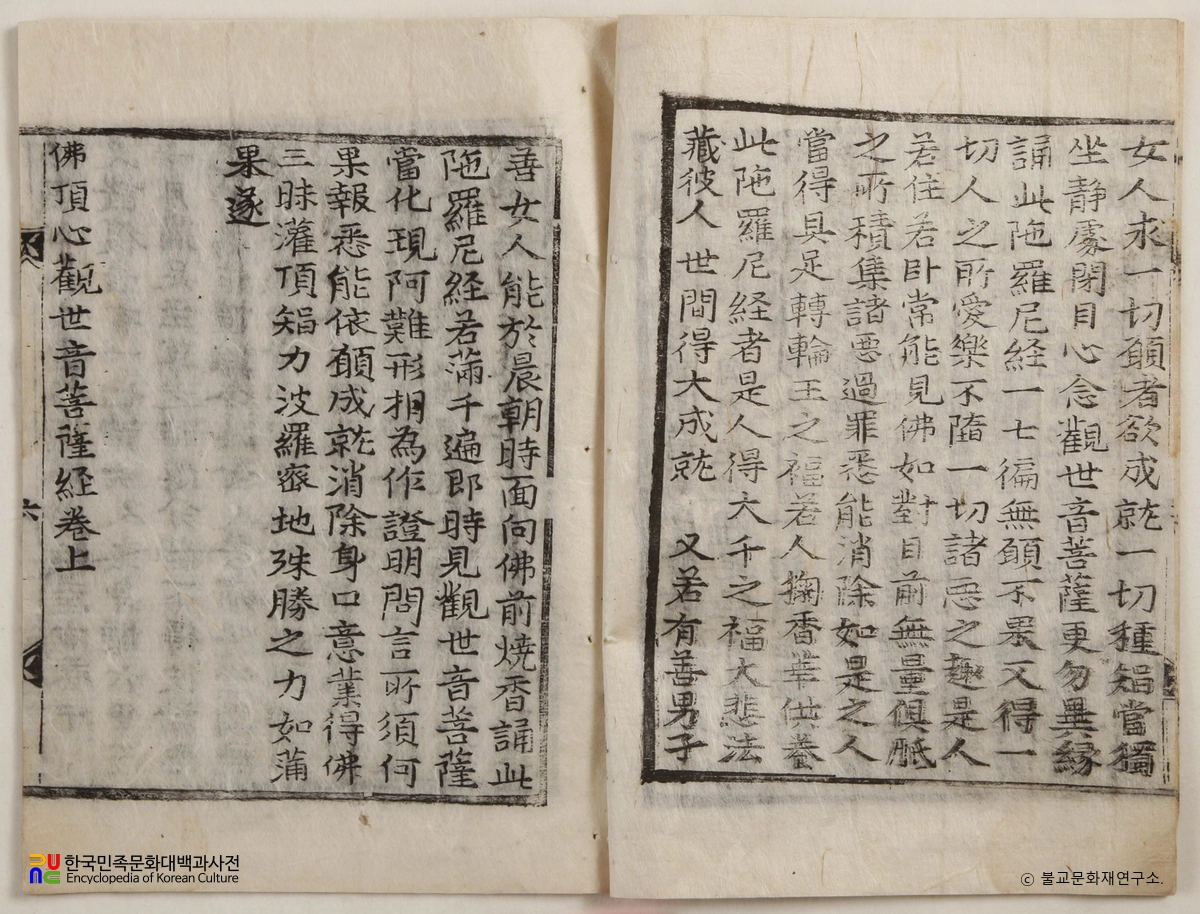 女人求一切願者欲成就一切種智當獨
坐静處閉目心念觀世音菩薩更勿異緣
誦此陁羅尼経一七徧無願不果又得一
切人之所愛樂不墮一切諸惡之趣是人
若住若卧常能見佛如對目前無量俱胝
之所積集諸惡過罪悉能消除如是之人
當得具足轉輪王之福若人掬香華供養
此陁羅尼経者是人得大千之福大悲法
藏彼人世間得大成就 又若有善男子
善女人能於晨朝時面向佛前燒香誦此
陁羅尼経若滿千遍即時見觀世音菩薩
當化現阿難形相為作證明問言所須何
果報悉能依願成就消除身口意業得佛
三昧灌頂智力波羅蜜地殊勝之力如蒲
果遂
佛頂心觀世音菩薩経卷上
六
한국민족문화대백과사전
Encyclopedia of Korean Culture
ⓒ 불교문화재연구소.